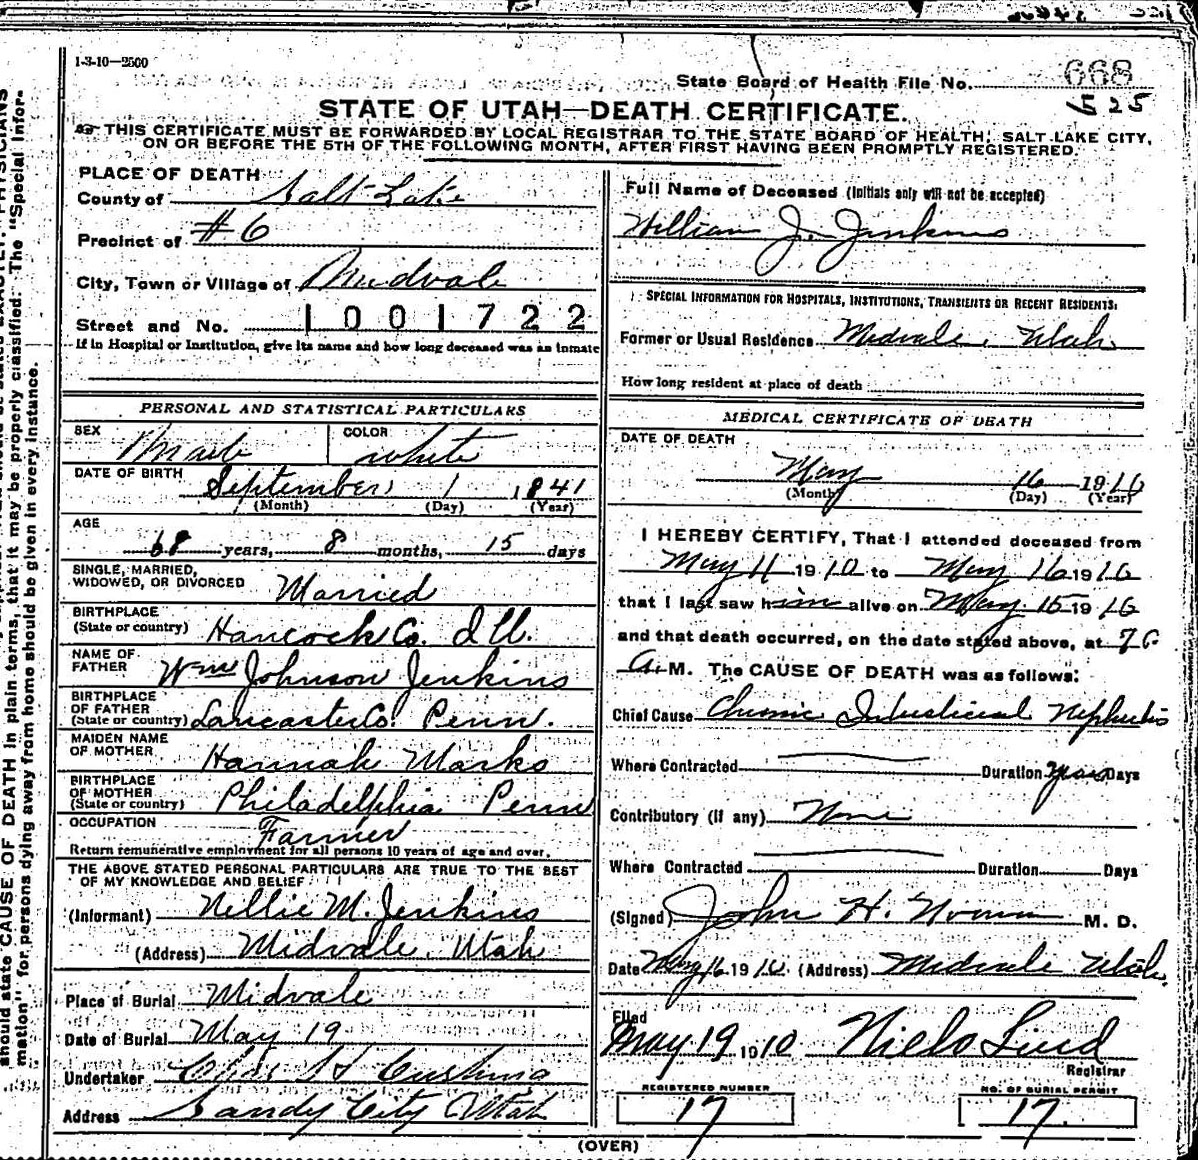 1-3-10—2500
State Board of Health File No. 668
525
STATE OF UTAH—DEATH CERTIFICATE.
THIS CERTIFICATE MUST BE FORWARDED BY LOCAL REGISTRAR TO THE STATE BOARD OF HEALTH, SALT LAKE CITY,
ON OR BEFORE THE 5TH OF THE FOLLOWING MONTH, AFTER FIRST HAVING BEEN PROMPTLY REGISTERED.
PLACE OF DEATH
County of Salt Lake
Precinct of #6
City, Town or Village of Midvale
Street and No. 1001722
If in Hospital or Institution, give its name and how long deceased was an inmate
PERSONAL AND STATISTICAL PARTICULARS
SEX Male COLOR white
DATE OF BIRTH September 1 1841
(Month) (Day) (Year)
AGE
68 years, 8 months, 15 days
SINGLE, MARRIED,
WIDOWED, OR DIVORCED Married
BIRTHPLACE
(State or country) Hancock Co. Ill.
NAME OF
FATHER Wm Johnson Jenkins
BIRTHPLACE
OF FATHER
(State or country) Lancaster Co. Penn.
MAIDEN NAME
OF MOTHER Hannah Marks
BIRTHPLACE
OF MOTHER
(State or country) Philadelphia Penn
OCCUPATION Farmer
Return remunerative employment for all persons 10 years of age and over.
THE ABOVE STATED PERSONAL PARTICULARS ARE TRUE TO THE BEST
OF MY KNOWLEDGE AND BELIEF
(Informant) Nellie M. Jenkins
(Address) Midvale Utah
Place of Burial Midvale
Date of Burial May 19
Undertaker
Address Sandy City Utah
Full Name of Deceased (Initials only will not be accepted)
William J. Jenkins
SPECIAL INFORMATION FOR HOSPITALS, INSTITUTIONS, TRANSIENTS OR RECENT RESIDENTS:
Former or Usual Residence Midvale, Utah.
How long resident at place of death
MEDICAL CERTIFICATE OF DEATH
DATE OF DEATH
May 16 1910
(Month) (Day) (Year)
I HEREBY CERTIFY, That I attended deceased from
May 11 1910 to May 16 1910
that I last saw him alive on May 15 1910
and that death occurred, on the date stated above, at
A. M. The CAUSE OF DEATH was as follows:
Chief Cause Chronic Interstitial Nephritis
Where Contracted Duration years Days
Contributory (if any) None
Where Contracted Duration Days
(Signed) John H. M. D.
Date May 16 1910 (Address) Midvale Utah.
Filed
May 19 1910 Niels Lind
Registrar
REGISTERED NUMBER
17
NO. OF BURIAL PERMIT
17.
(OVER)
should state CAUSE OF DEATH in plain terms, that it may be properly classified. The "Special Infor-
mation" for persons dying away from home should be given in every instance.